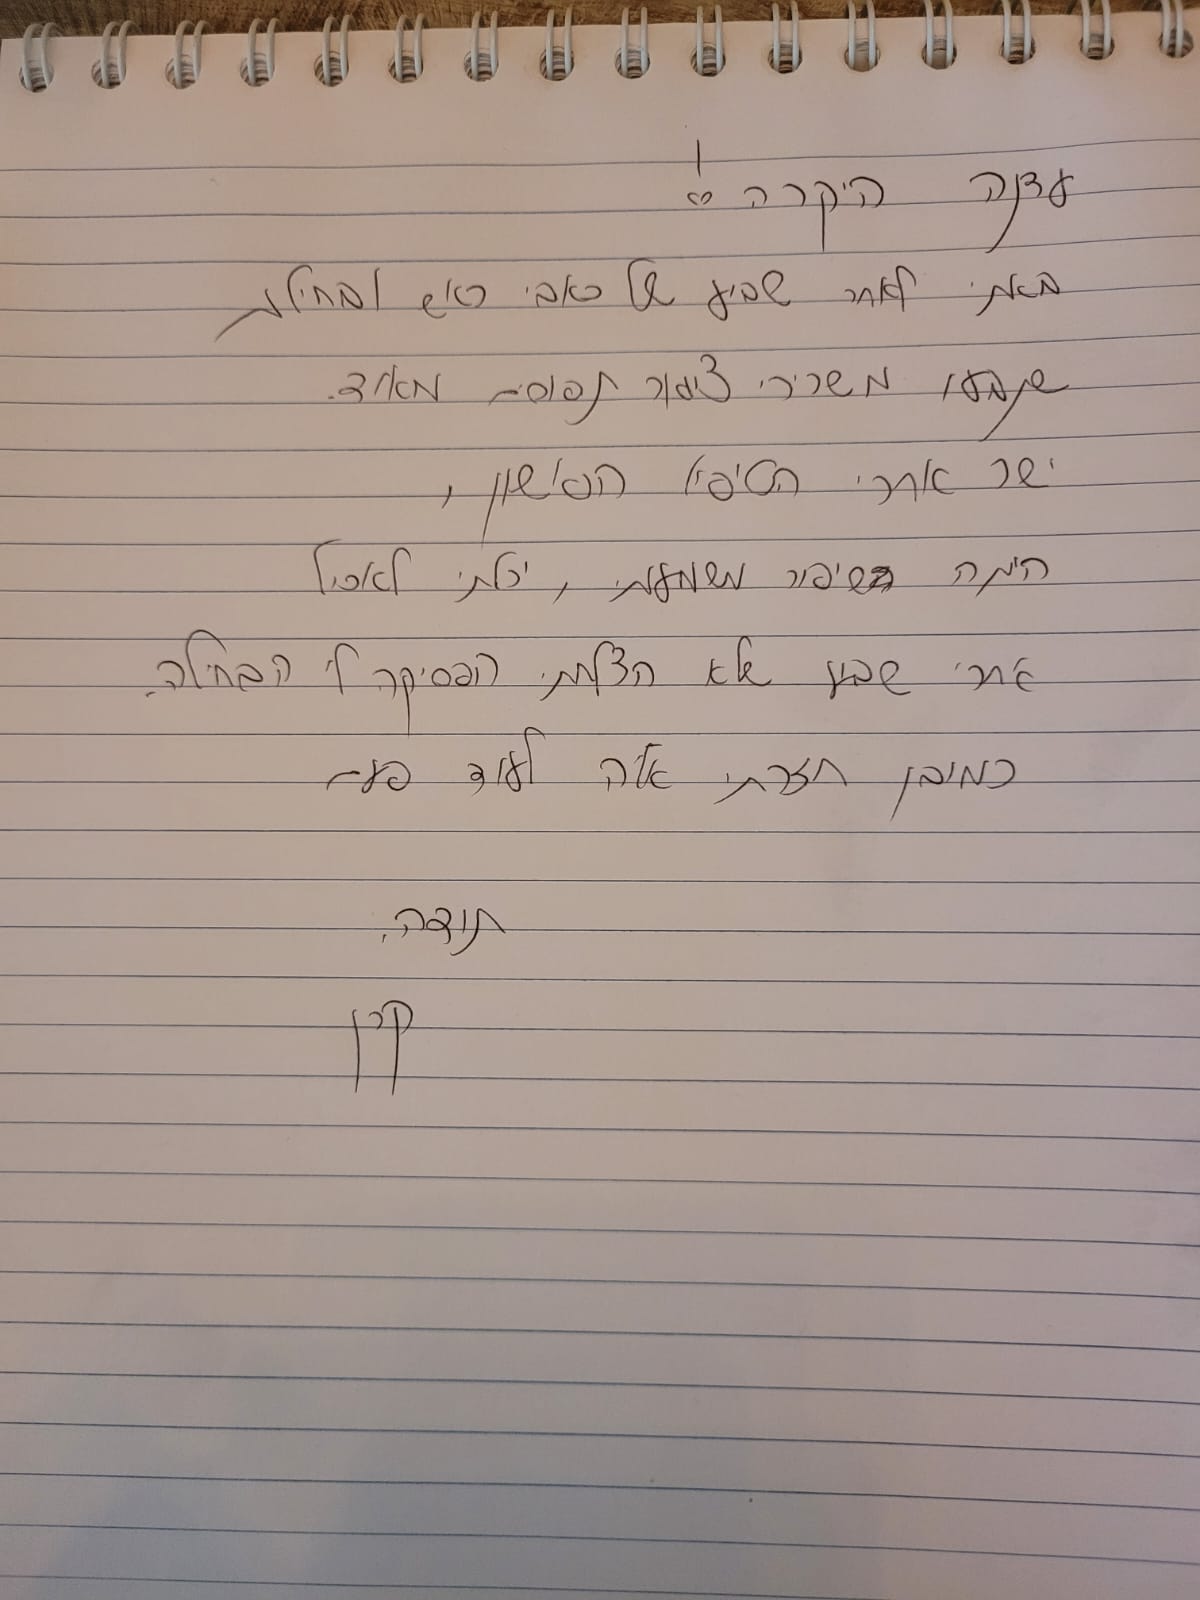 עדנה היקרה!
באתי לאחר שבוע של כאבי ראש ובחילות
שנבעו משרירי צוואר תפוסים מאוד.
ישר אחרי הטיפול הראשון,
היתה שיפור משמעותי, יכלתי לאכול
אחרי שבוע שלא הצלחתי הפסיקה לי הבחילה.
כמובן חזרתי אליה לעוד פעם
תודה.
קרן